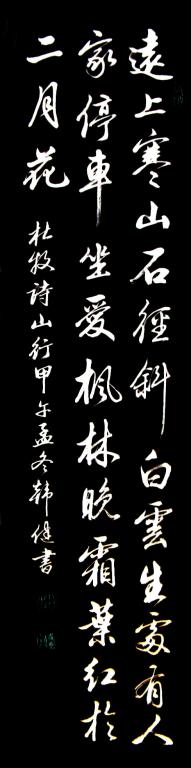 遠上寒山石徑斜白雲生處有人
家停車坐愛楓林晚霜葉紅於
二月花
杜牧詩山行甲午孟冬韓健書